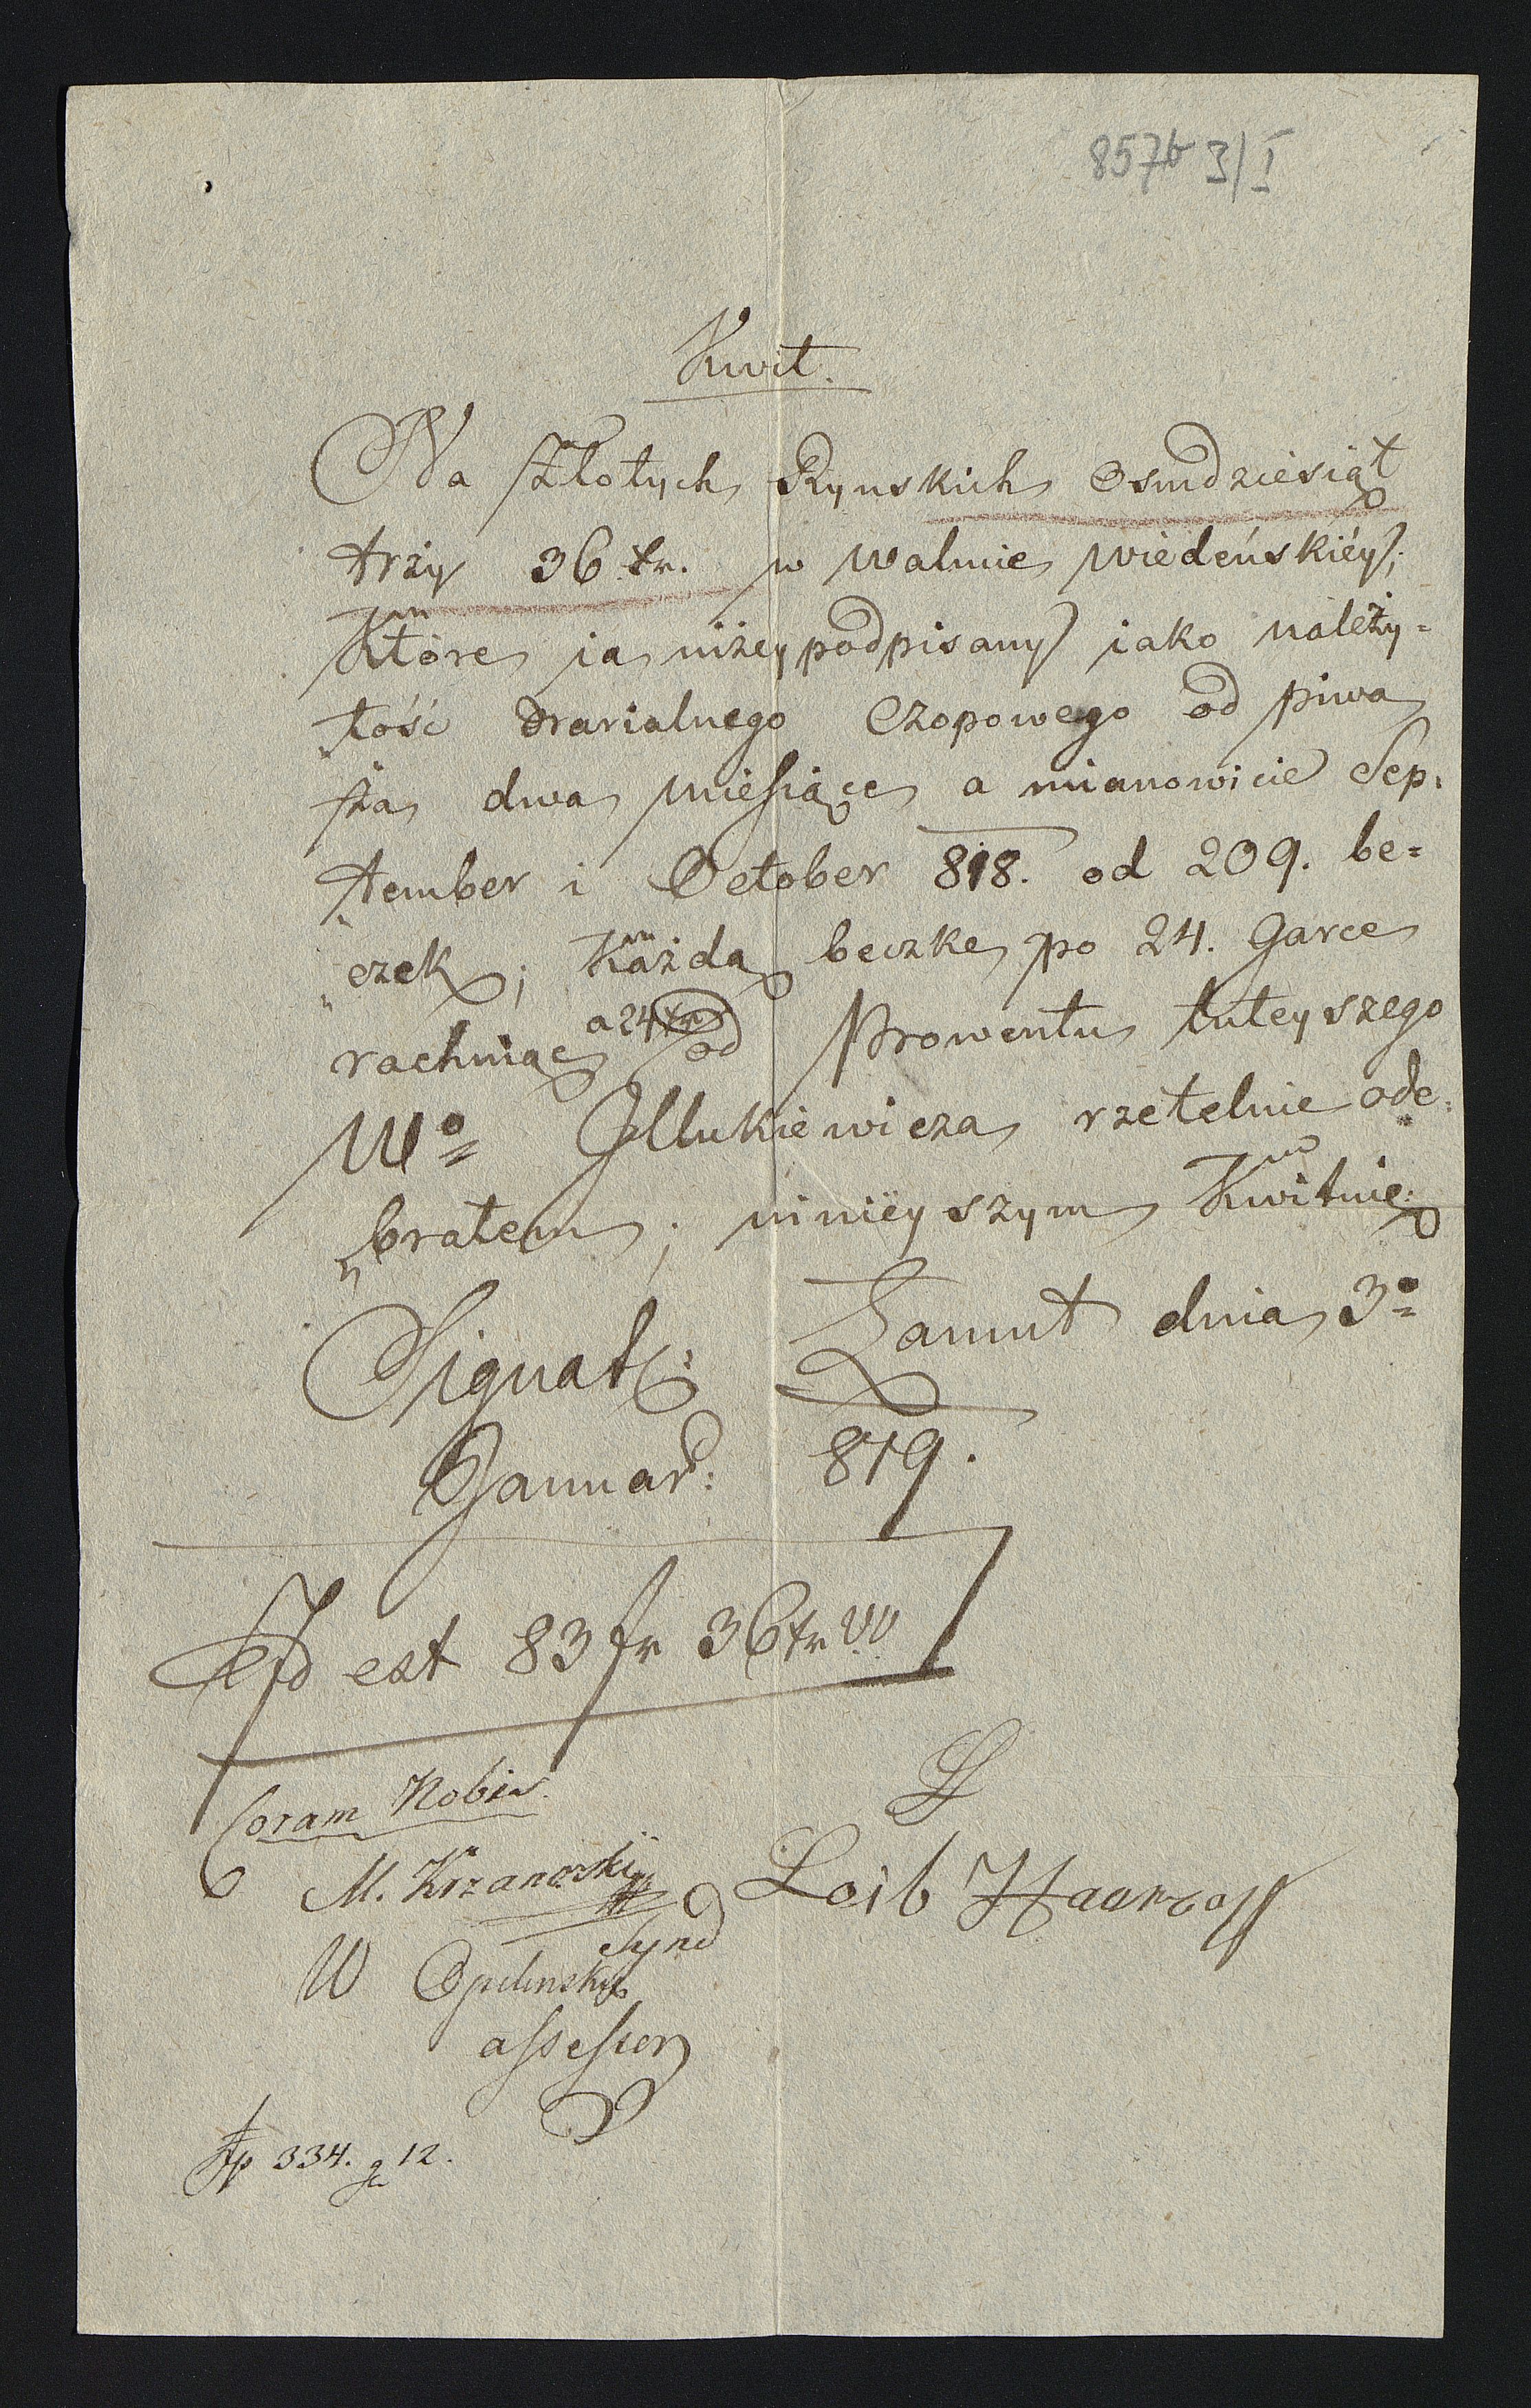 857b 3/I
Kwit.
Na Złotych Rynskich Osmdziesiąt
trzy 36 xr. w Walucie Wiedeńskiéy;
Które ia niżey podpisany iako należy=
tość Ærarialnego Czopowego od piwa
za dwa Miesiące a mianowicie Sep:
tember i October 818. od 209. be=
czek; Każda beczke po 24. Garce
rachuiąc a 24 xr od Prowentu tuteyszego
Wo Illukiewicza rzetelnie ode:
brałem; ninieyszym Kwituię.
Signat: Łancut dnia 3o
Januar: 819.
Id est 83 fr 36 xr W.W.
Coram Nobis.
M. Krzanowski
Synd
W Opelinsky
assessor
Leib
Zp 334. g 12.